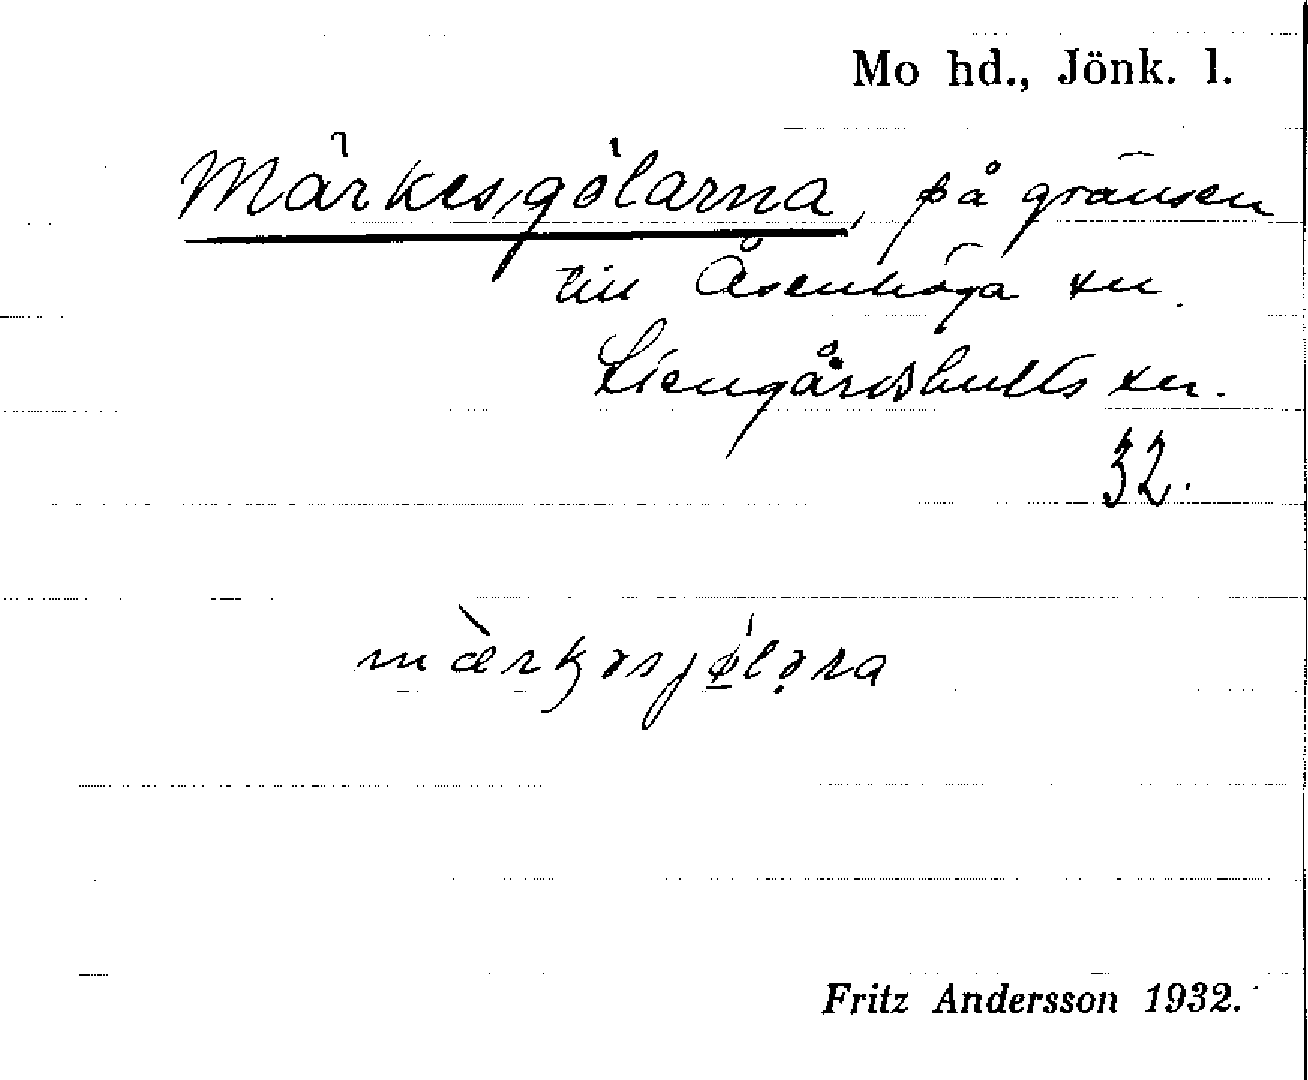 Mo hd., Jönk. l.
Märkesgölarna, på gränsen
till Åsenhöga sn.
Liengårdshults sn.
32.
mæ̀rkəsjǿ̲lə̣ra
Fritz Andersson 1932.